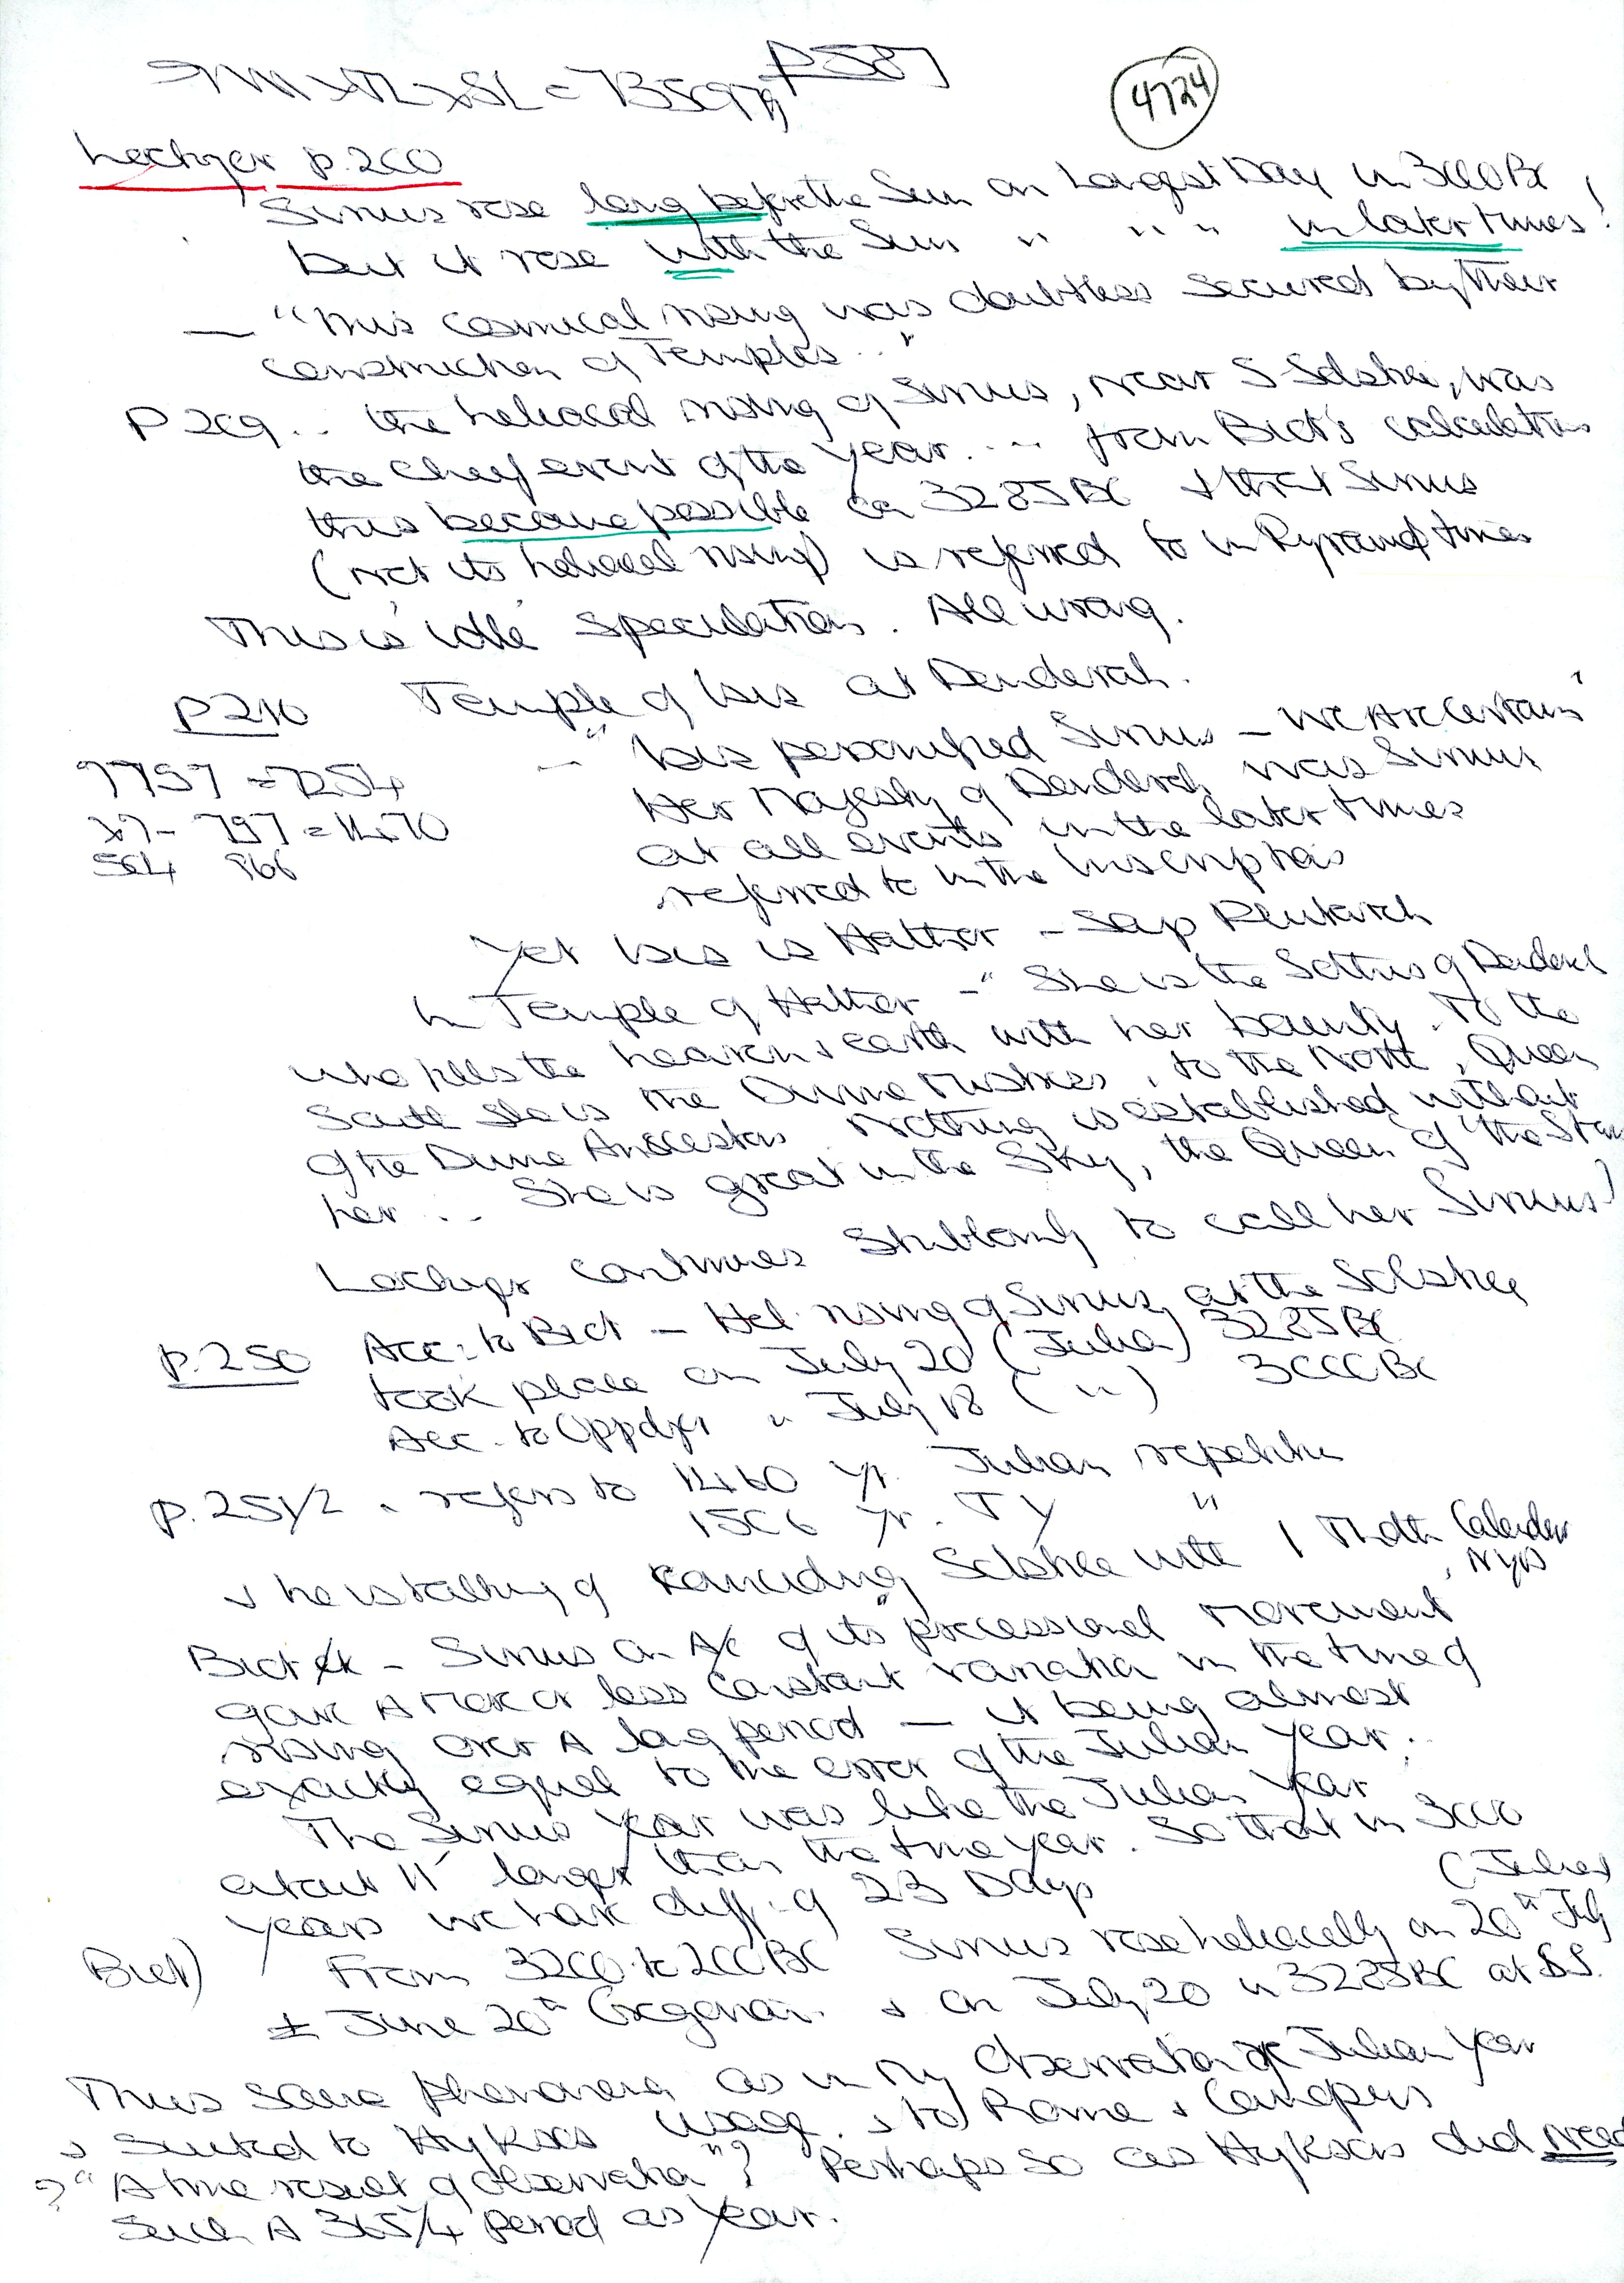 P587
4724
Lockyer p.200
Sirius rose long before the Sun on Longest Day in 3000 BC
but it rose with the Sun " " " " in later times!
— "This cosmical rising was doubtless secured by their
construction of Temples..."
P 209 .. the heliacal rising of Sirius, near S-Solstice, was
the chief event of the year ... from Biot's calculations
this became possible ca 3285 BC & that Sirius
(not its heliacal rising) is referred to in Pyramid times
This is 'idle' speculation. All wrong.
P 210 Temple of Isis at Denderah.
— "Isis personified Sirius — We Are Certain"
Her Majesty of Denderah was Sirius
at all events in the later times
referred to in the inscriptions
Yet Isis is Hathor — Says Plutarch
In Temple of Hathor — "She is the Sothis of Denderah
who fills the heavens & earth with her bounty. To the
South she is the Divine Mistress, to the North, Queen
of the Divine Ancestors. Nothing is established without
her ... She is great in the Sky, the Queen of the Stars
Lockyer continues stubbornly to call her Sirius!
P. 250 Acc. to Biot — Hel. rising of Sirius, at the Solstice
took place on July 20 (Julian) 3285 BC
Acc. to Oppolzer " July 18 ( " ) 3000 BC
P. 251/2 . refers to 1460 yr. Julian repetition
1506 yr. TY "
& he is talking of coinciding Solstice with 1 Thoth Calendar
NYD
Biot — Sirius on A/c of its "precessional movement
gave A more or less constant variation in the time of
rising over A long period — it being almost
exactly equal to the error of the Julian Year.
The Sirius Year was like the Julian Year
about 11' longer than the true year. So that in 3000
years we have diff. of 23 Days
(Julian)
Biot) From 3200 to 200 BC Sirius rose heliacally on 20th July
± June 20th Gregorian. & on July 20 in 3285 BC at S.S.
Thus same phenomena as in my observation of Julian Year
& suited to Hyksos usage. & to Rome & Canopus
? "A true result of observation"? Perhaps so as Hyksos did need
such A 365¼ period as Year.